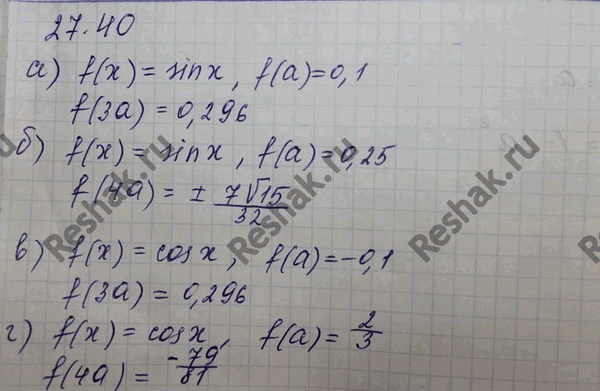 27.40
а) f(x) = sinx, f(a)=0,1
f(3a) = 0,296
б) f(x) = sinx, f(a)=0,25
f(4a) = ± 7√15/32
в) f(x) = cosx, f(a)=-0,1
f(3a) = 0,296
г) f(x) = cosx, f(a) = 2/3
f(4a) = -79/81
Reshak.ru
Reshak.ru
Reshak.ru
Reshak.ru
Reshak.ru
Reshak.ru